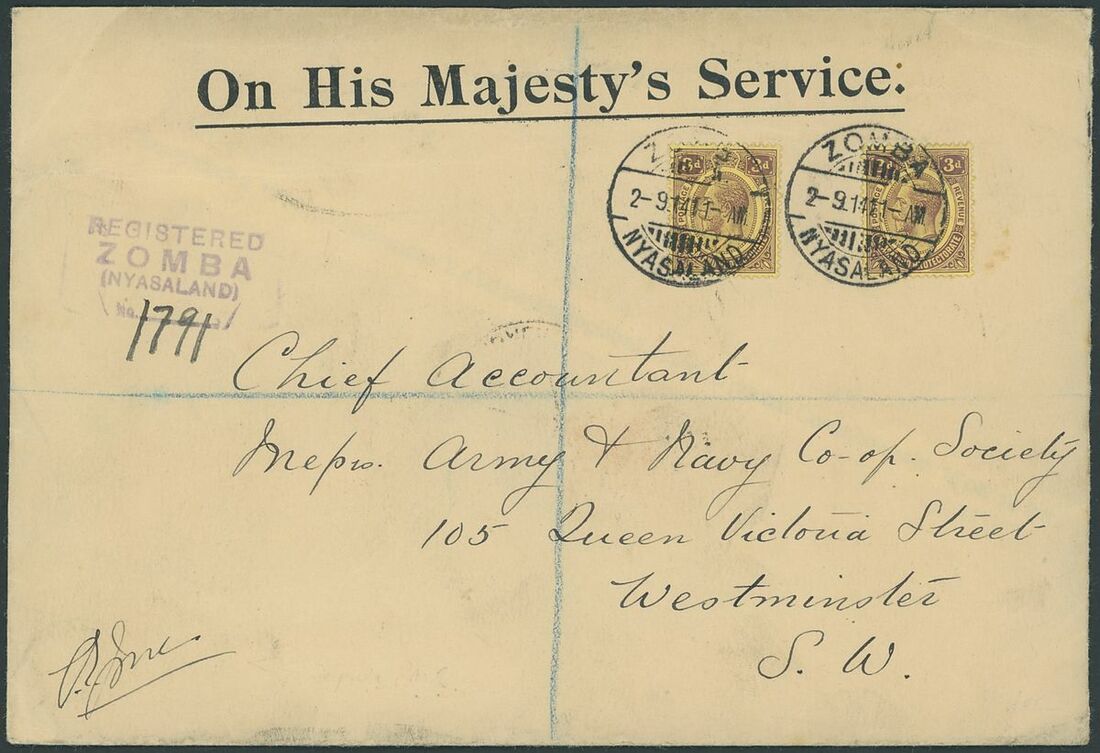 On His Majesty's Service.
ZOMBA
2-9.14 11-AM
NYASALAND
3d
POSTAGE
ZOMBA
2-9.14 11-AM
NYASALAND
3d
REVENUE
PROTECTORATE
REGISTERED
ZOMBA
(NYASALAND)
No. 1791
Chief Accountant
Messrs. Army & Navy Co-op. Society
105 Queen Victoria Street
Westminster
S. W.